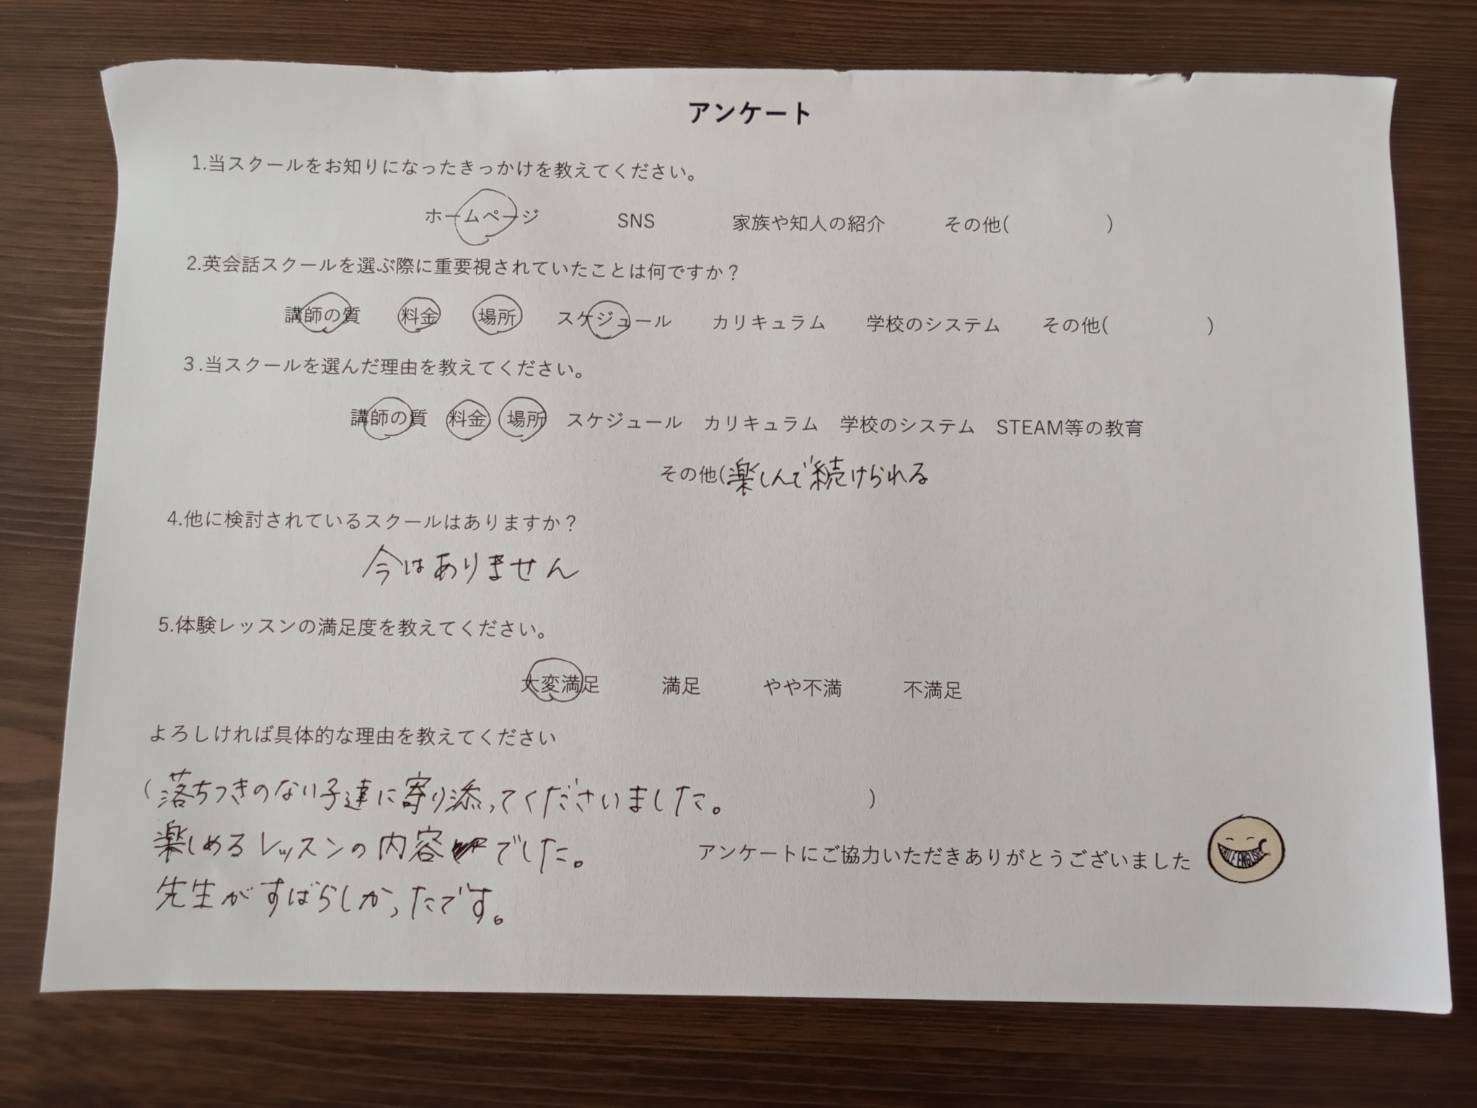 アンケート
1.当スクールをお知りになったきっかけを教えてください。
ホームページ SNS 家族や知人の紹介 その他( )
2.英会話スクールを選ぶ際に重要視されていたことは何ですか？
講師の質 料金 場所 スケジュール カリキュラム 学校のシステム その他( )
3.当スクールを選んだ理由を教えてください。
講師の質 料金 場所 スケジュール カリキュラム 学校のシステム STEAM等の教育
その他(楽しんで続けられる
4.他に検討されているスクールはありますか？
今はありません
5.体験レッスンの満足度を教えてください。
大変満足 満足 やや不満 不満足
よろしければ具体的な理由を教えてください
(落ちつきのない子達に寄り添ってくださいました。 )
楽しめるレッスンの内容でした。
アンケートにご協力いただきありがとうございました
先生がすばらしかったです。